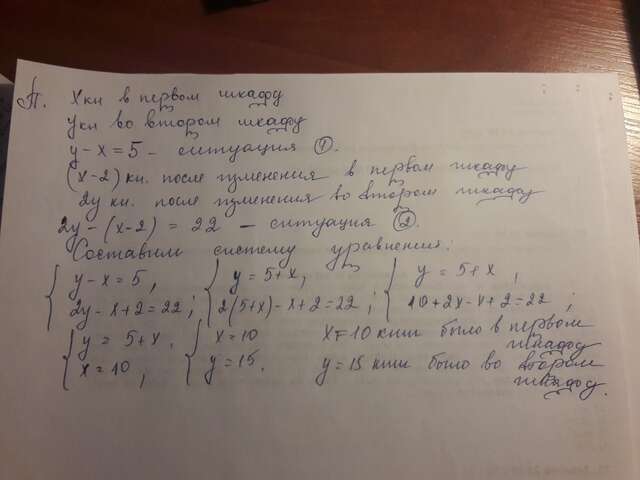 П. x кн в первом шкафу
y кн во втором шкафу
y - x = 5 - ситуация ①.
(x-2) кн. после изменения в первом шкафу
2y кн. после изменения во втором шкафу
2y - (x-2) = 22 - ситуация ②.
Составим систему уравнений:
{ y - x = 5, { y = 5 + x, { y = 5 + x,
2y - x + 2 = 22; 2(5+x) - x + 2 = 22; 10 + 2x - x + 2 = 22;
{ y = 5 + x, { x = 10 x = 10 книг было в первом
шкафу
x = 10, y = 15. y = 15 книг было во втором
шкафу.